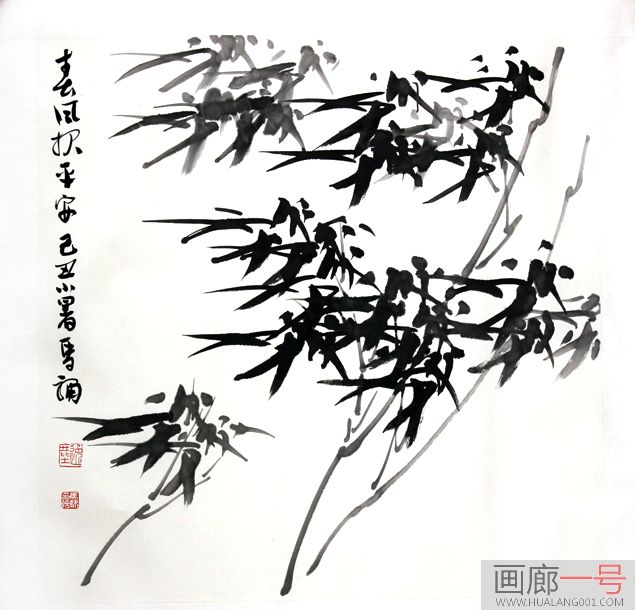 春风报平安 己丑小暑马
画廊一号
WWW.HUALANG001.COM